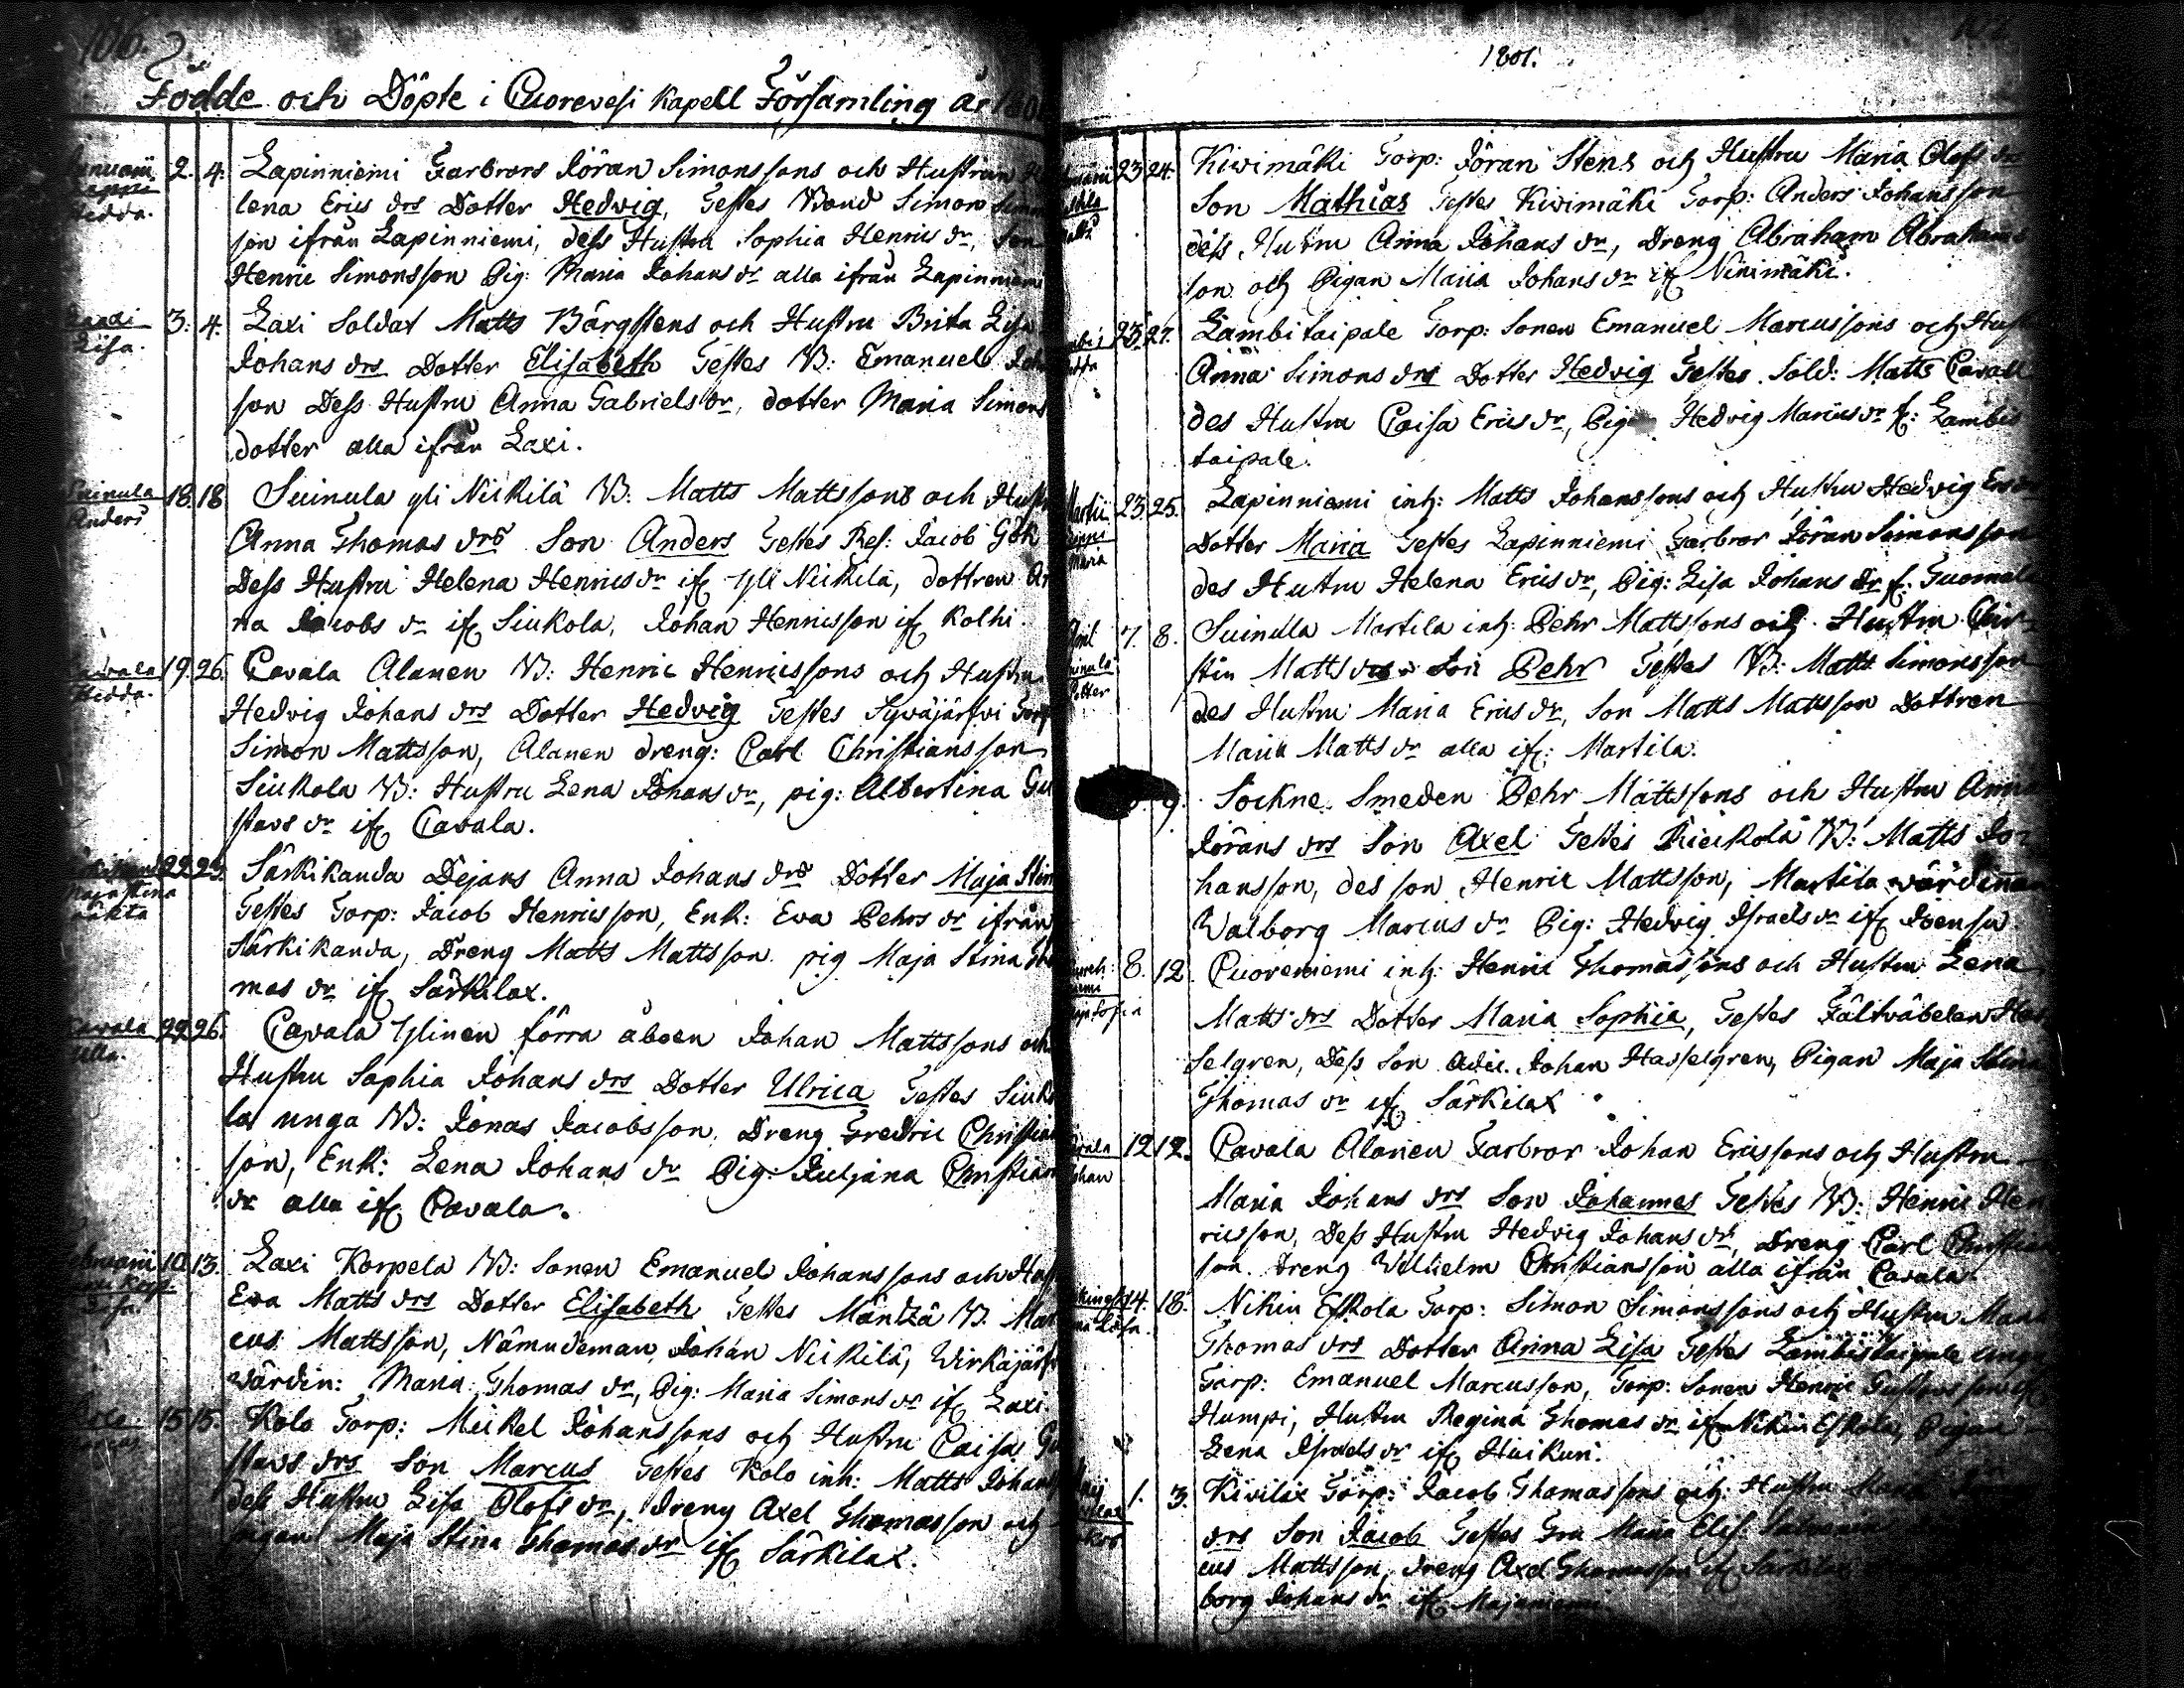 106.
Födde och Döpte i Cuorevesi Kapell Församling år 1801
Januarii 2. 4. Lapinniemi Farbrors Jöran Simonssons och Hustrun
Hedda. lena Erics drs Dotter Hedvig, Testes Bond Simon
son ifrån Lapinniemi, dess Hustru Sophia Henrics dr, son
Henric Simonsson Pig: Maria Johans dr alla ifrån Lapinniemi
3. 4. Laxi Soldat Matts Bärgstens och Hustru Brita Lisa
Lisa. Johans drs Dotter Elisabeth Testes B: Emanuel
son Dess Hustru Anna Gabriels dr, dotter Maria Simons
dotter alla ifrån Laxi.
Suinula 18. 18 Suinula yli Niikilä B: Matts Mattssons och
Anders Anna Thomas drs Son Anders Testes Ref: Jacob Gök
Dess Hustru Helena Henrics dr if Yli Niikilä, dottren An
na Jacobs dr if Siukola, Johan Henricsson if Kolhi.
19. 26. Cavala Alanen B: Henric Henricssons och Hustru
Hedda. Hedvig Johans drs Dotter Hedvig Testes Syväjärfvi Torp
Simon Mattsson, Alanen dreng: Carl Christiansson
Siukola B: Hustru Lena Johans dr, pig: Albertina Gu
stavs dr if Cavala.
22. 23. Särkikanda Dejans Anna Johans drs Dotter Maja Stin
Maja Stina Testes Torp: Jacob Henricsson, Enk: Eva Pehrs dr ifrån
oäkta Särkikanda, Dreng Matts Mattsson pig Maja Stina
mas dr if Särkilax.
Cavala 22 26. Cavala Ylinen förra åboen Johan Mattssons och
Ulla. Hustru Sophia Johans drs Dotter Ulrica Testes Siuko
la unga B: Jonas Jacobsson, Dreng Fredric Christian
son, Enk: Lena Johans dr Pig: Juljana Christian
dr alla if Cavala.
10. 13. Laxi Korpela B: Sonen Emanuel Johanssons och
Eva Matts drs Dotter Elisabeth Testes Mäntzä B. Mar
cus Mattsson, Nämndeman Johan Niikilä, Wirkäjärfvi
wärdin: Maria Thomas dr, Pig: Maria Simons dr if Laxi.
15 15. Kolo Torp: Mickel Johanssons och Hustru Caisa Gu
stavs drs Son Marcus Testes Kolo inh: Matts Johans
dess Hustru Lisa Olofs dr, dreng Axel Thomasson och
pigan Maja Stina Thomas dr if Särkilax.
1801.
23 24. Kivimäki Torp: Jöran Stens och Hustru Maria Olofs dr
Son Mathias Testes Kivimäki Torp: Anders Johansson
dess Hustru Anna Johans dr, Dreng Abraham Abrahams
son och Pigan Maria Johans dr if Ninimäki.
23. 27. Lambitaipale Torp: Sonen Emanuel Marcussons och
Anna Simons drs Dotter Hedvig Testes Sold: Matts Cavall
des Hustru Caisa Erics dr, Pig Hedvig Marcus dr f: Lambis
taipale.
Martii 23. 25. Lapinniemi inh: Matts Johanssons och Hustru Hedvig
Maria Dotter Maria Testes Lapinniemi Farbror Jöran Simonsson
des Hustru Helena Erics dr, Pig: Lisa Johans dr f. Tuomala
7. 8. Suinula Martila inh: Pehr Mattssons och Hustru Chir-
stin Matts drs Son Pehr Testes B: Matts Simonsson
Petter des Hustru Maria Erics dr, Son Matts Mattsson Dottren
Maria Matts dr alla if: Martila.
9. Sockne Smeden Pehr Mattssons och Hustru Anna
Jörans drs Son Axel Testes Rieikola B: Matts Jo-
hansson, des son Henric Mattsson, Martila wärdinnan
Walborg Marcus dr Pig: Hedvig Israels dr if Joensu
8. 12. Cuoreniemi inh: Henric Thomassons och Hustru Lena
Matts drs Dotter Maria Sophia, Testes Fältväbelen Has
selgren, Dess Son Johan Hasselgren, Pigan Maja Stina
Thomas dr if Särkilax
12 12. Cavala Alanen Farbror Johan Ericssons och Hustru
Johan Maria Johans drs Son Johannes Testes B: Henric Hen
ricsson, Dess Hustru Hedvig Johans dr, Dreng Carl Christian
son. Dreng Wilhelm Christiansson alla ifrån Cavala.
14. 18. Nikin Eskola Torp: Simon Simonssons och Hustru Maria
Thomas drs Dotter Anna Lisa Testes Lambistaipale
Torp: Emanuel Marcusson, Torp: Sonen Henric
Humpi, Hustru Regina Thomas dr if Nikin Eskola, Pigan
Lena Israels dr if Huikuri.
1. 3. Kivilax Torp: Jacob Thomassons och Hustru Maria
drs Son Jacob Testes Fru Maria Elis:
cus Mattsson, dreng Axel Thomasson if Särkilax
borg Johans dr if